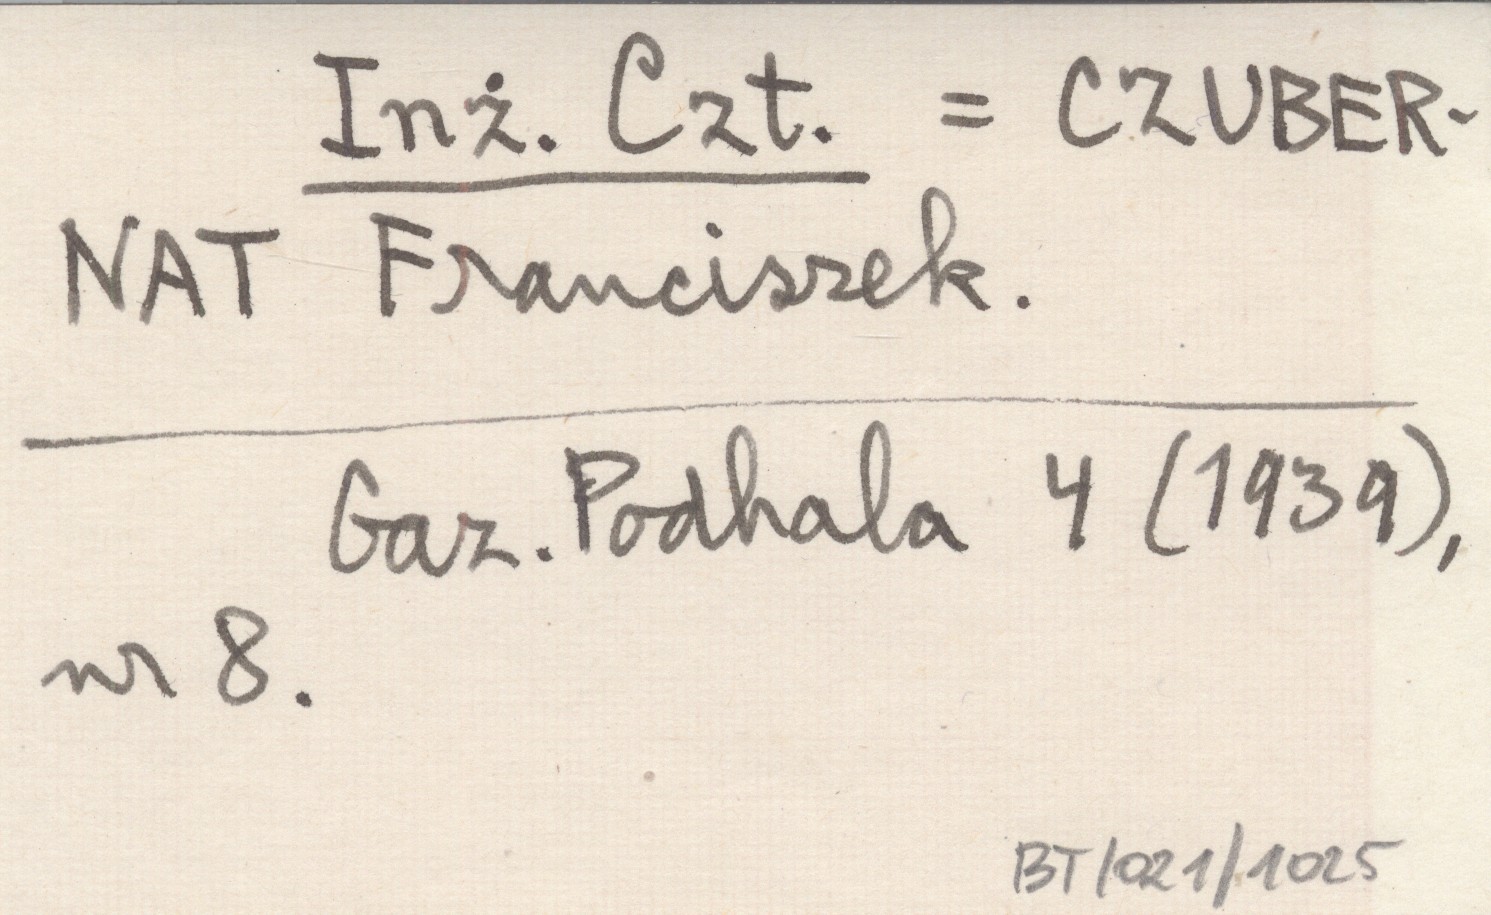 Inż. Czt. = CZUBER-
NAT Franciszek.
Gaz. Podhala 4 (1939),
nr 8.
BT/021/1025